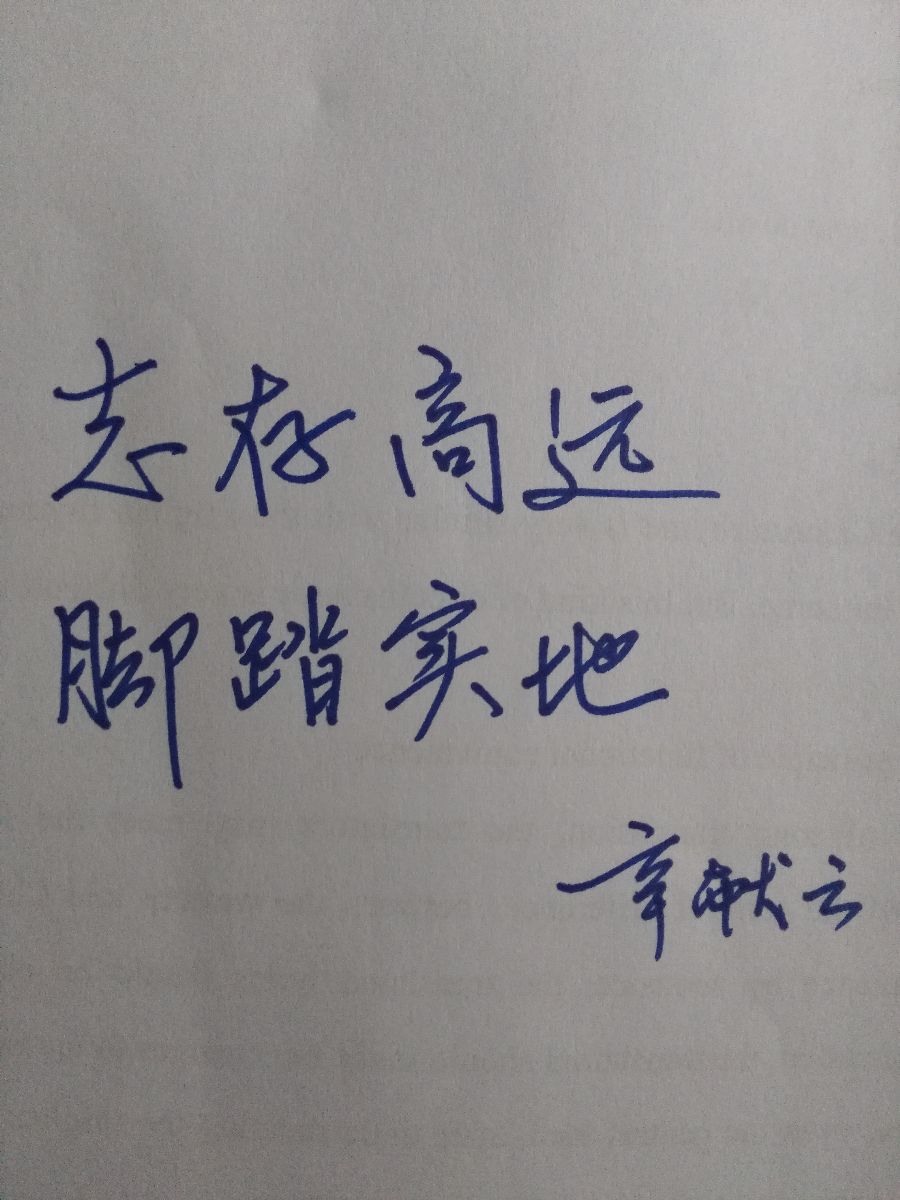 志存高远
脚踏实地
辛献云